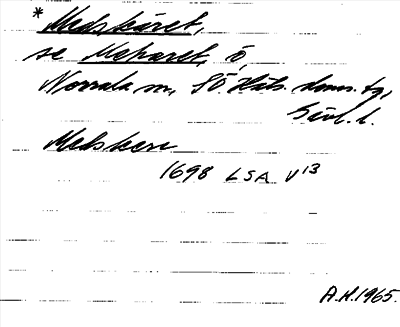 * Medskäret,
se Maharet, ö,
Norrala sn, SÖ. Häls. doms. tg,
Gävl. l.
Medskere
1698 LSA V13
A.H. 1965.